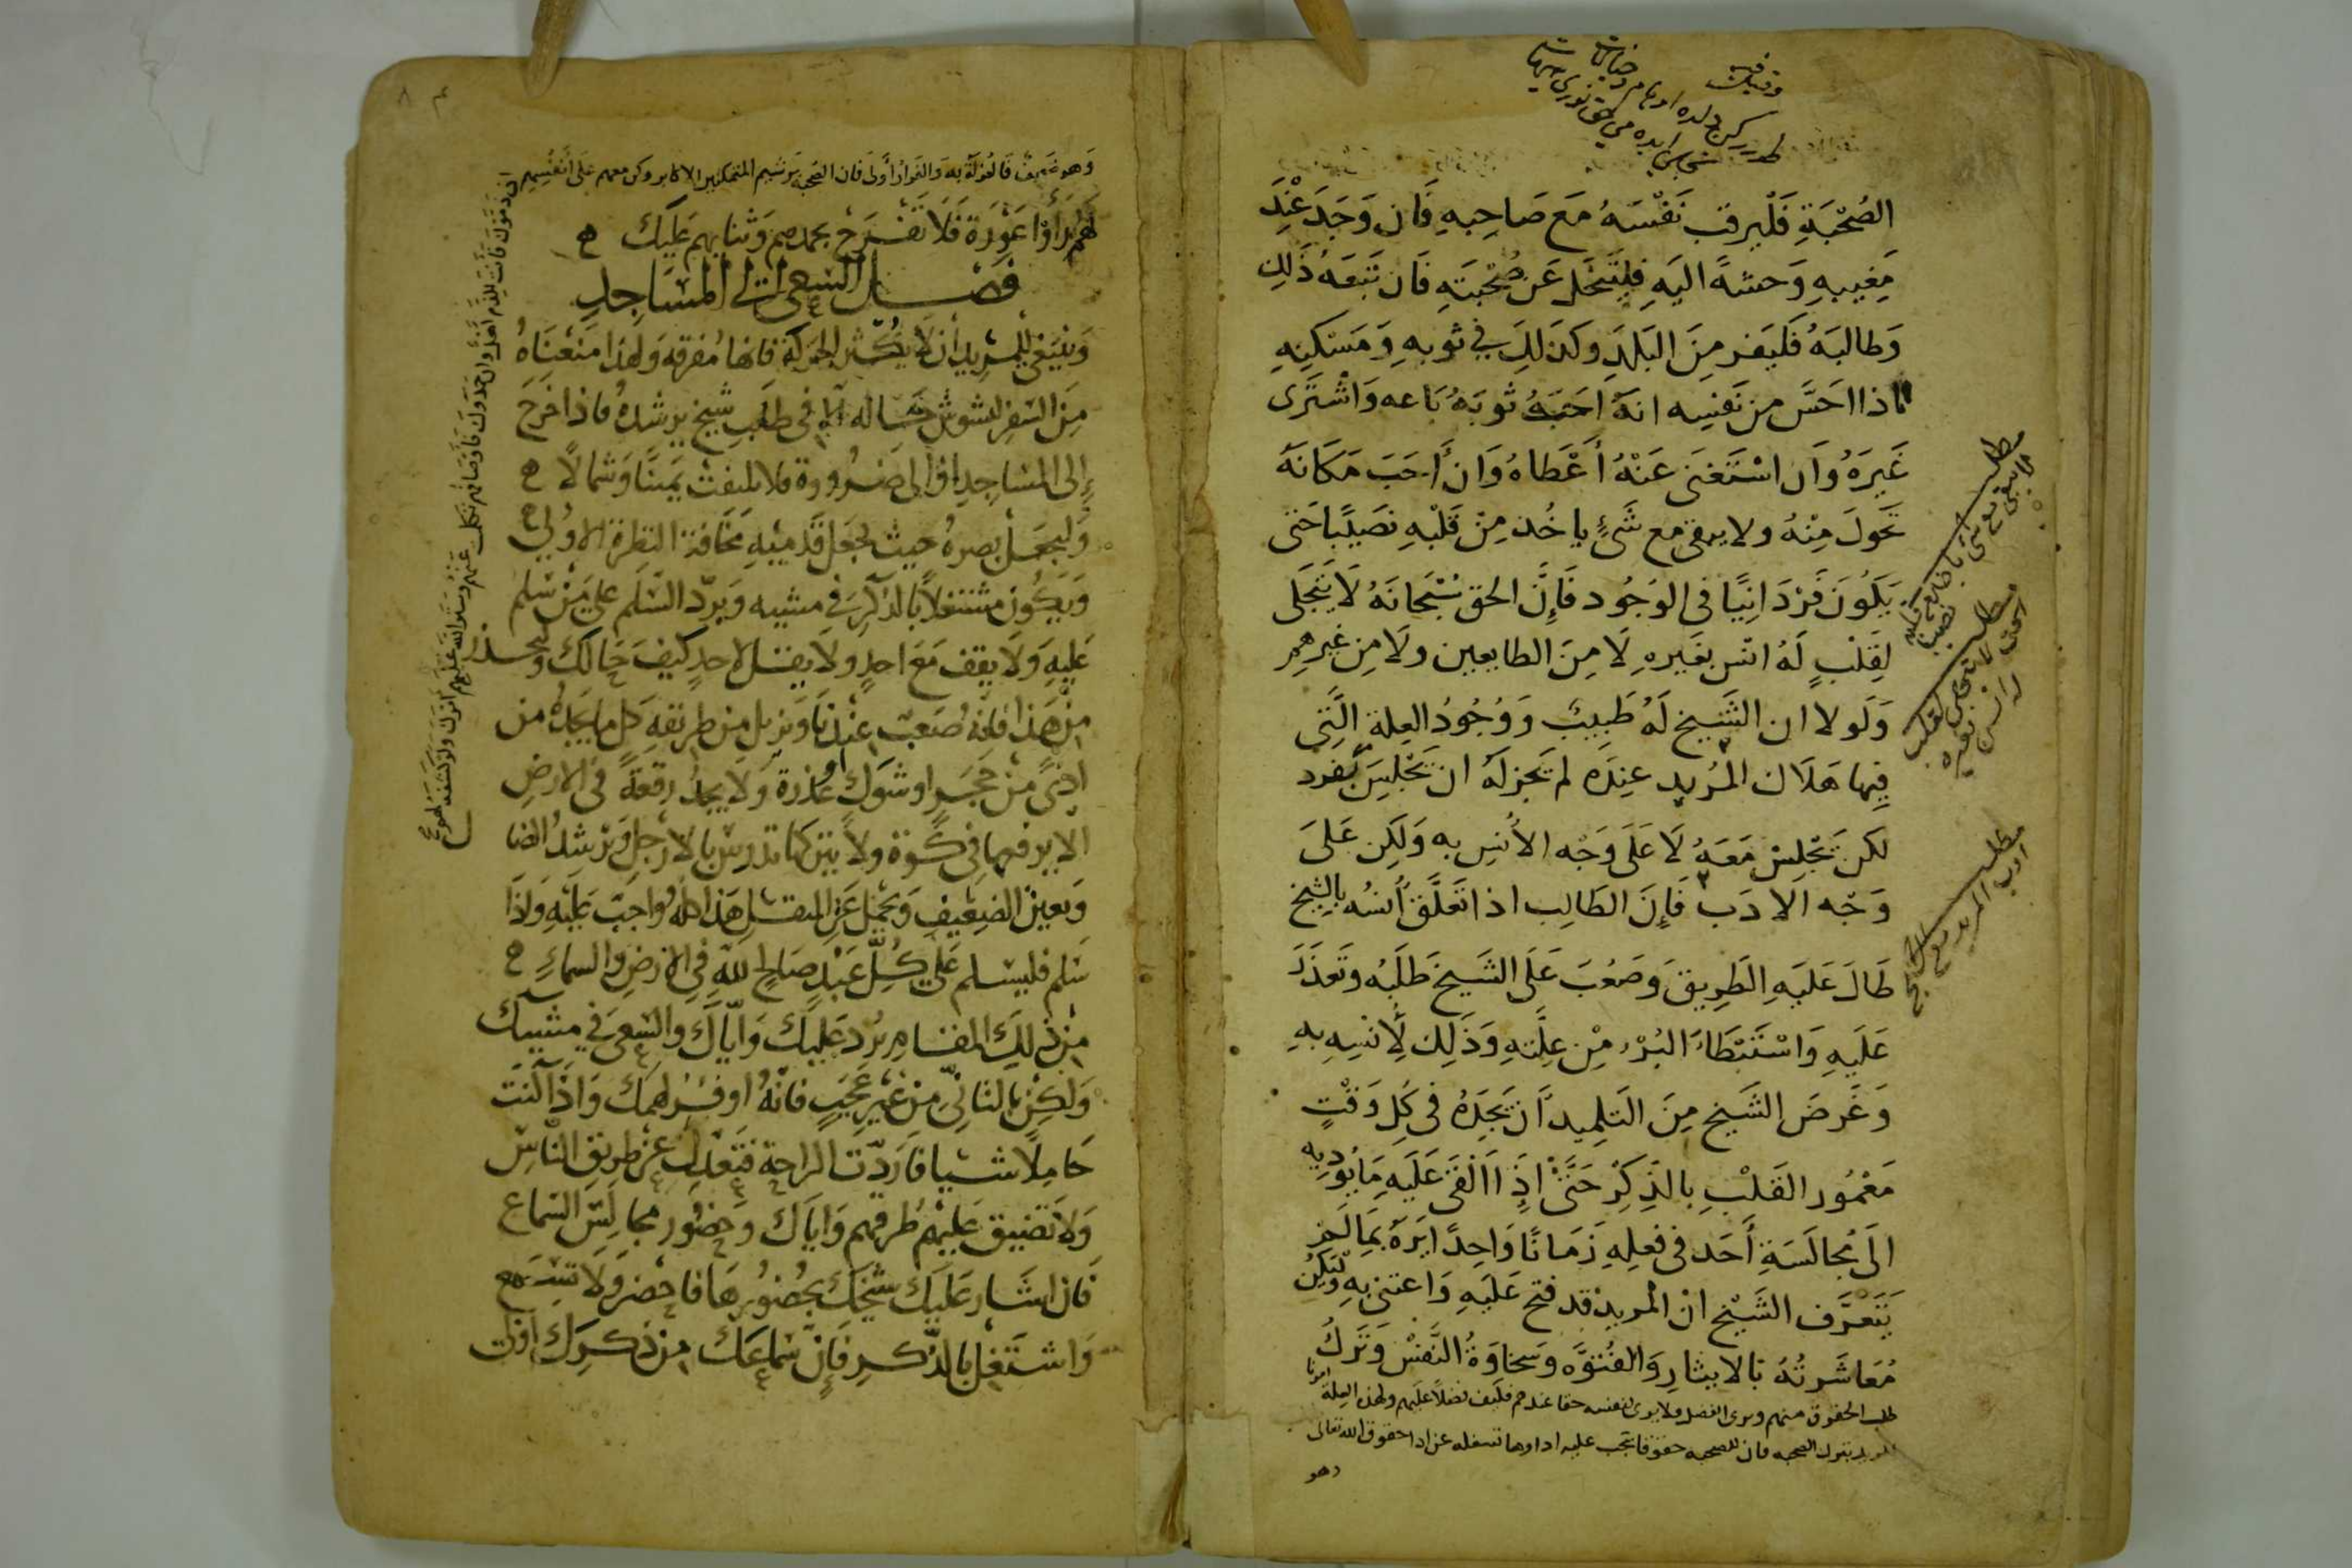 الصُحْبَةِ فَلْيرقب نَفْسَهُ مَع صَاحِبهِ فَان وَجَدَ عِنْدَ
مَغِيبهِ وَحشةً اليَهِ فليَتَخَل عَن صُحْبَتهِ فَان تَبَعَهُ ذَلِك
وَطالبَهُ فَليَفر مِنَ البَلَدِ وكذلكَ في ثوبهِ وَمَسْكنِهِ
فاذا احَسَّ من نَفسِه انهُ احَبَهُ ثوبَهُ بَاعه وَاشْتَرى
غَيرَهُ وَان اسْتَغنَى عَنْهُ أعْطاهُ وَان أحَبَ مَكَانَهُ
تَحَولَ مِنْهُ ولا يبقى مع شَيءٍ ياخُذ مِنْ قَلْبهِ نَصيْبًا حَتى
يَكُونَ فَرْدَانِيًا فى الوُجُود فَإِنَّ الحق سُبْحَانَهُ لَا يَتَجَلى
لِقَلْبٍ لَهُ انْس بغَيرهِ لَا مِنَ الطايعين ولَا مِن غيرهِمِ
وَلَولا ان الشَيخ لَهُ طَبِيبٌ وَوُجُودُ العِلة الَّتِى
فيهَا هَلَاك المُريد عِندَه لم تَجز لَهُ ان تَجْلِسَ بمفرد
لكن تَجْلِس مَعَهُ لَا عَلَى وَجْه الأنسِ به وَلَكِن عَلىَ
وَجْه الادَب فَإِنَ الطَالِب اذا تَعَلَّق أُنسُه بالشيخ
طَالَ عَليَهِ الطَرِيقَ وَصَعُبَ عَلَى الشَيخ طَلَبُه وتَعذَرَ
عَلَيهِ وَاسْتَبْطاءَ البُرْء مِنْ عِلَّتهِ وَذَلِك لأنسِهِ بهِ
وَغَرضَ الشَيخ مِنَ التَلمِيد أن تَجِدَهُ فى كِل وَقْتٍ
مَعْمُور القَلْبِ بالذِكِرْ حَتَّىْ اذِا اَلْقَى عَلَيهِ مَا يُودِيه
الىَ مُجالَسَةِ أَحَد فى فعلِهِ زَمَانًا وَاحِدًا
يَتَعرَّف الشَيْخ ان المُريد قد فتح عَليَهِ وَاعتنى بهِ وَلتكن
مُعَاشَرتُهُ بالايثارِ وَالفُتوَّه وسَخاوَةُ النَّفسْ وَتَركُ
طلب الحقوق منهم ويرى الفضل ولا يرى لنفسه حقا عندهم فكيف فضلاً عليهم ولهذه العِلة امرنا
المريد بترك الصحبه فان للصحبه حقوقا تجب عليه اداوها تشغله عن ادا حقوق الله تعالى
وهو
مطلب
لا يبقى مع شى ياخذ من قلبه نصيبا
مطلب
الحق لا يتجلى لقلب له انس بغيره
مطلب
ادب المريد مع الشيخ
وَهو ضَعِيف فَالعُزلَةُ بهِ وَالفِرار أوْلى فان الصحبة من شيم المتمكنين الاكابر وكن معهم عَلى أنفُسِهم
فَلَا تَفْرَحْ بحمدهم وَثنايهم عَلَيك
فَصْل السَعى الى المسَاجِدِ
وَينبَغى للمريد ان لا يكثر الحركة فانها مُفرقه ولهذا مَنعْنَاهُ
مِنَ السَفر لتشوش حَاله الا فى طلَب شيخ يرشدهُ فاذا خرجَ
إِلى المسَاجِد او الى ضرُورة فلا يلتفت يَمينًا وَشمَالًا
وَليجعل بصره حيث يجعل قدَميْهِ مَخَافة النظرة الاولى
وَيَكُون مشتغلاً بالذكر فى مشيه وَيردّ السَّلَم على من سَلم
عَليهِ وَلَا يقف مَعَ احدٍ ولَا يقل لاحدٍ كيفَ حَالك وليحذر
مِن هَذا فانّه صَعب عِنْدنَا وَيزيل مِن طرِيقهِ كل ما يجدهُ من
اذى مِنْ حَجَرٍ او شوك او عذرة وَلَا يجدُ رقعَةً فى الارضِ
الا يرفعهَا فى كُوة ولا يتركها تدوس بالارجل وَيرشد الضَال
وَيعين الضعِيف وَيحمل عَن المثقل هَذا كله وَاجب عَليه وَاذا
سَلم فليسَلم عَلى كُلّ عَبْدٍ صَالِح لله فى الارضِ والسماءِ
مِن ذلكَ المقام يرُد عَليكَ وَايّاكَ والسَعى فى مشييك
وَلكِن بالتَانّى مِن غير عُجبٍ فانهُ اوفر لهمك وَاذا كنت
حَامِلًا شَيا فاردت الراحة فتعدل عَن طريقِ النَّاس
وَلا تضيق عليهم طرقهم وَاياك وحضور مجالس السَماع
فَان اشَار عَليك شيخكَ بحُضورهَا فاحضر وَلَا تسمع
وَاشتَغل بالذّكر فَإِنّ سَماعَك من ذكرِك اولى